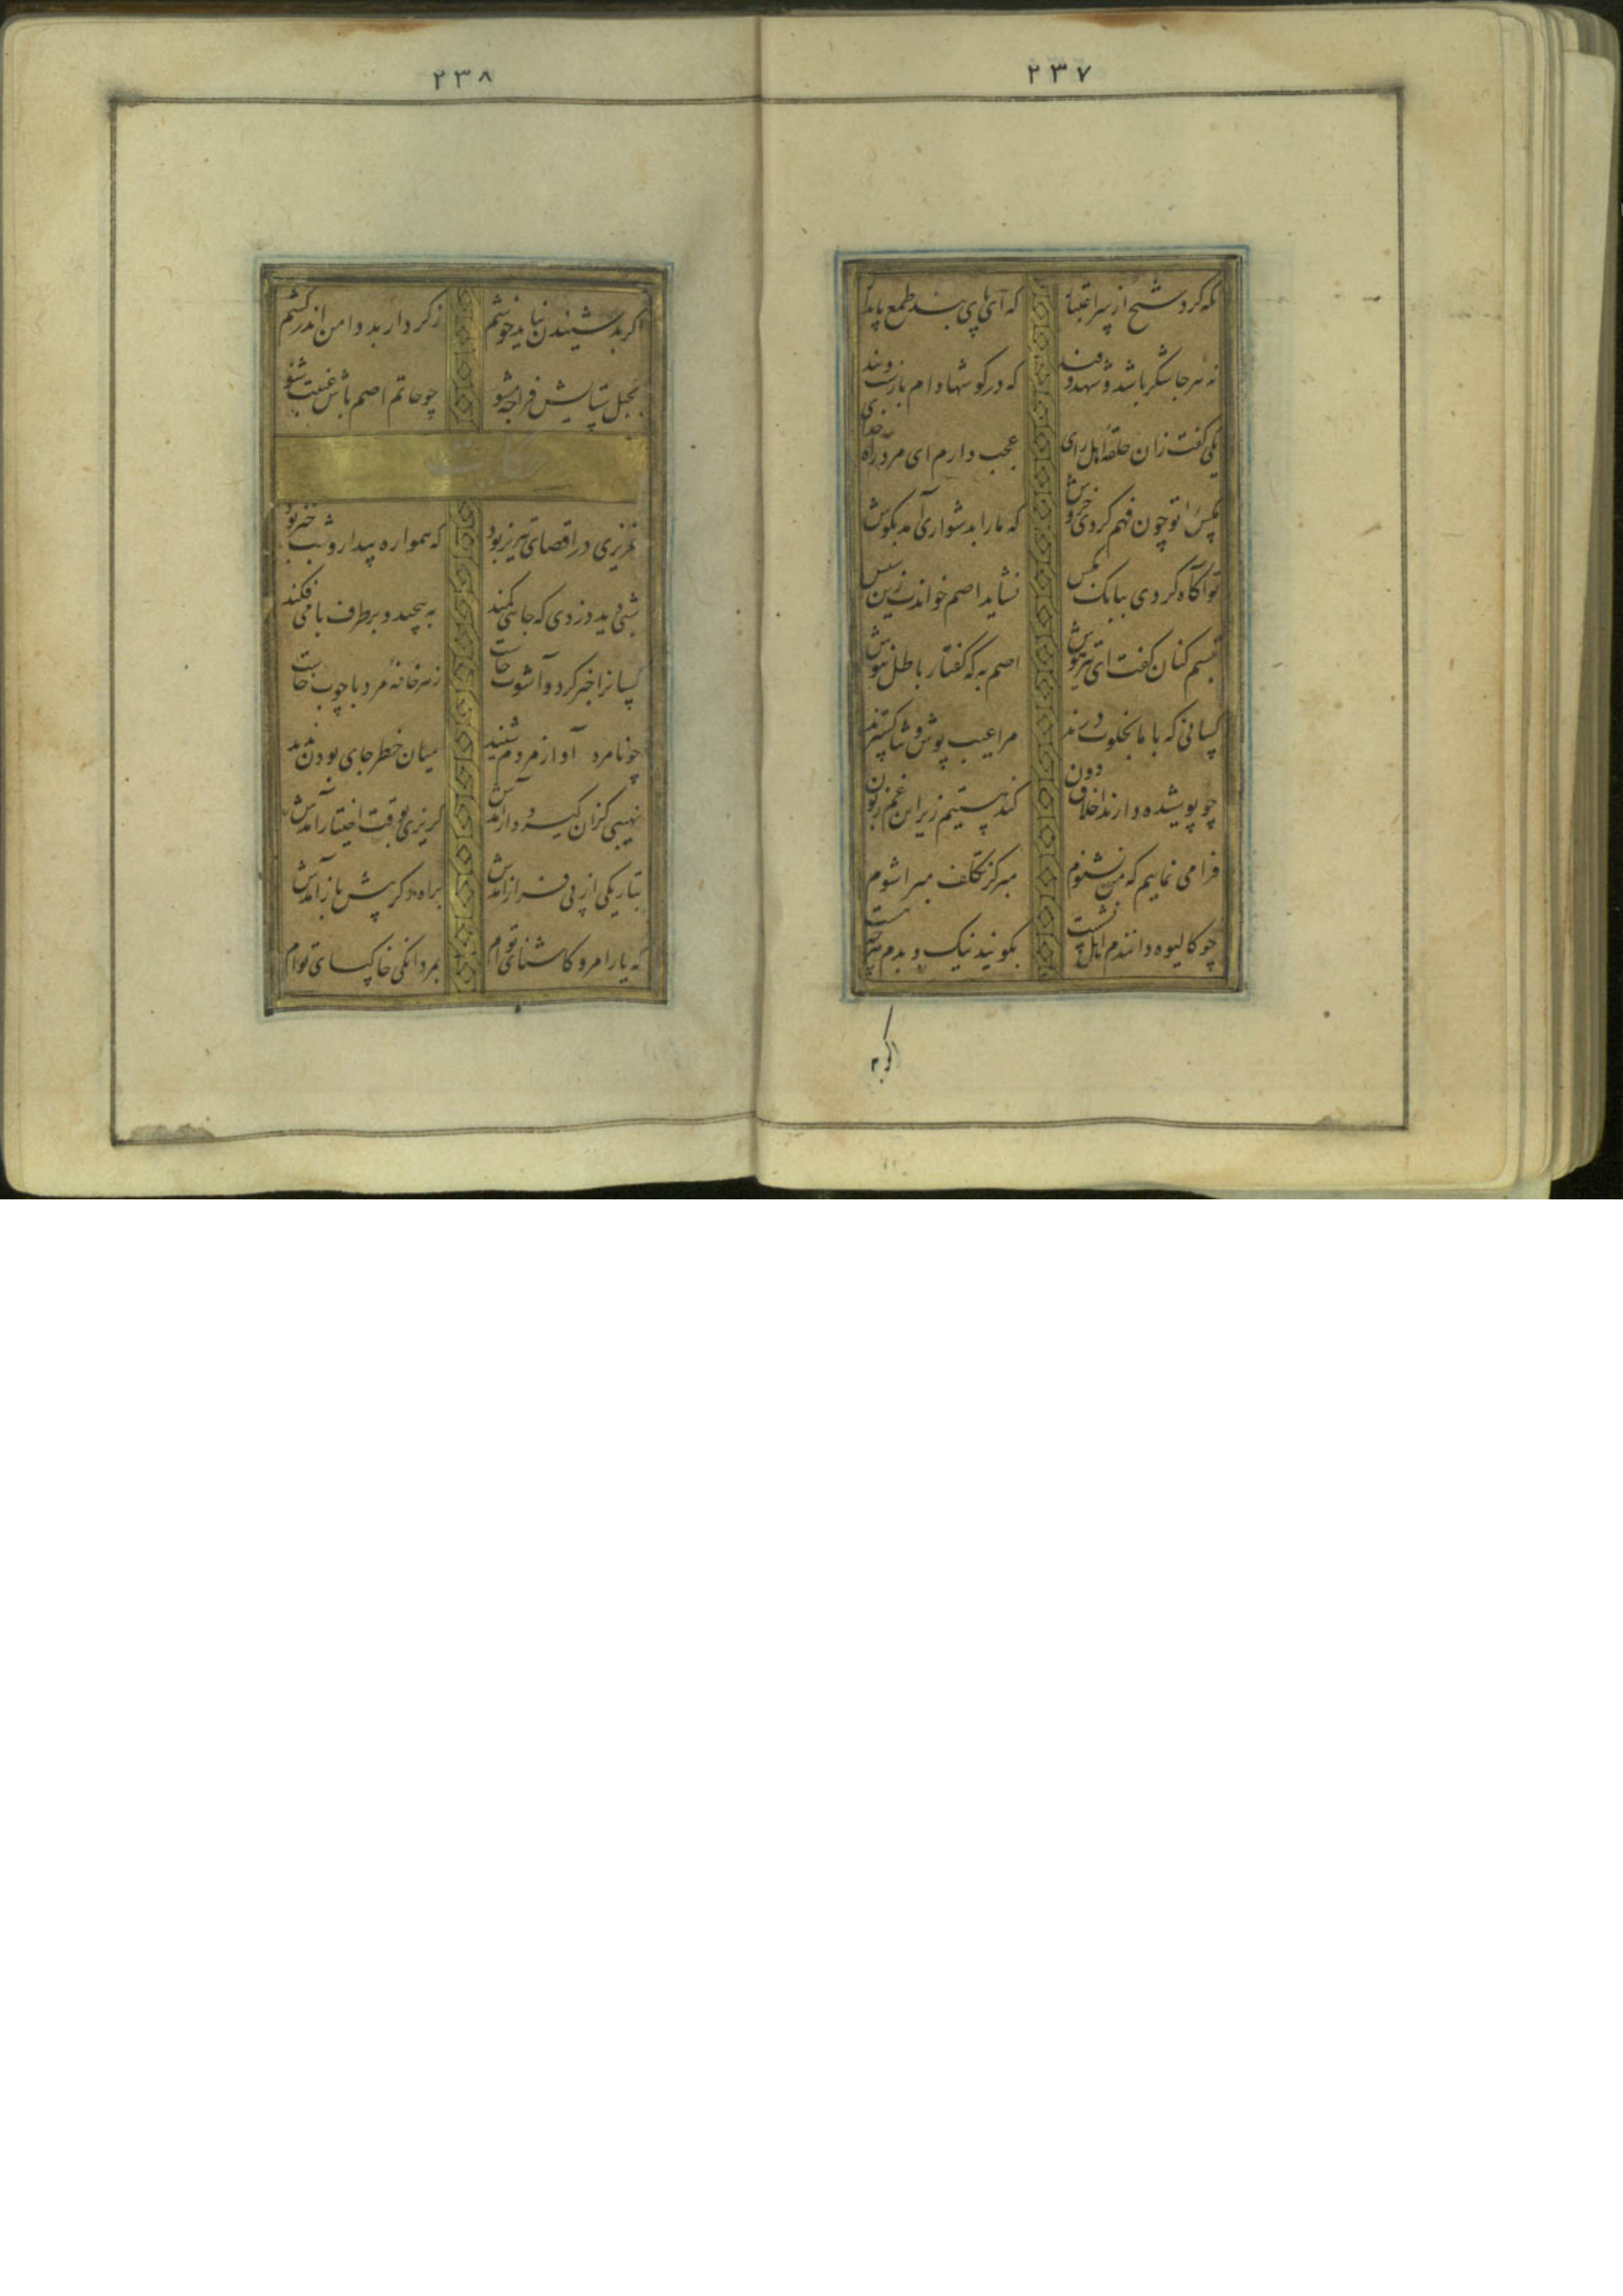 ۲۳۷
نکه کرد شیخ از سر اعتبار که ای پای بند طمع پایدار
نه هر جا شکر باشد و شهد و قند که در گوشها دام بازست و بند
یکی گفت زان حلقهٔ اهل رای عجب دارم ای مرد راه خدای
مگس را تو چون فهم کردی خروش که ما را بدشواری آمد بگوش
تو آگاه گردی ببانک مگس نشاید اصم خواندنت زین سپس
تبسم کنان گفت ای تیزهوش اصم به که گفتار باطل نیوش
کسانی که با ما بخلوت درند مرا عیب پوش و ثنا گسترند
چو پوشیده دارند اخلاق دون کند هستیم زیر این غم زبون
فرا می نمایم که من نشنوم مبر کز تکلف مبرا شوم
چو کالیوه دانندم اهل نشست بگویند نیک و بدم هر چه هست
اگر بد
۲۳۸
اگر بد شنیدن نیاید خوشم ز کردار بد دامن اندر کشم
بحبل ستایش فرا چه مشو چو حاتم اصم باش غیبت شنو
حکایت
عزیزی در اقصای تبریز بود که همواره بیدار و شب خیز بود
شبی دید دزدی که جایی کمند بپیچید و بر طرف بامی فکند
کسانرا خبر کرد و آشوب خاست ز هر خانهٔ مرد با چوب خاست
چو نامرد آواز مردم شنید میان خطر جای بودن ندید
نهیبی کزان گیر و دار آمدش گریزی بوقت اختیار آمدش
بتاریکی از پی فراز آمدش براه دگر پیش باز آمدش
که یارا مرو کاشنای توام بمردانگی خاکپای توام